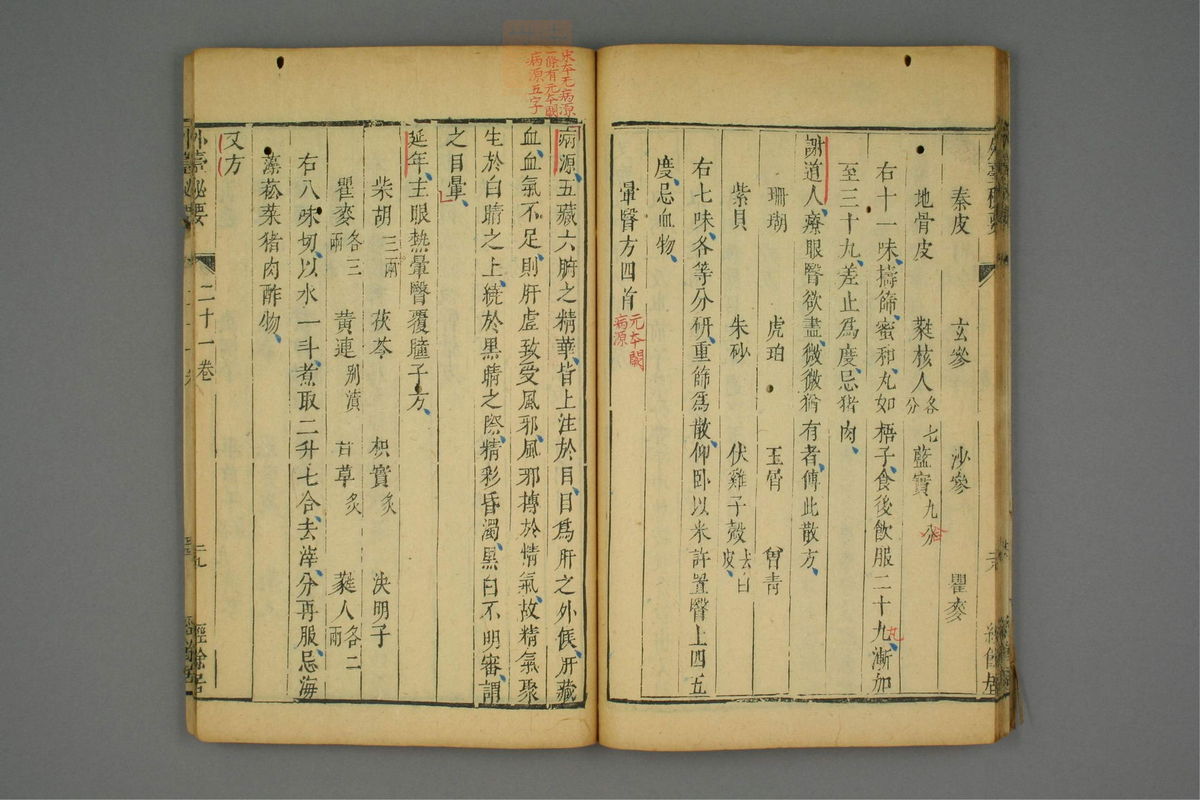 秦皮 玄參 沙參 瞿麥
地骨皮 蕤核人各七分 藍實九分
右十一味擣篩蜜和丸如梧子食後飲服二十九漸加
丸
至三十九差止爲度忌猪肉
謝道人療眼瞖欲盡微微猶有者傅此散方
珊瑚 虎珀 玉屑 曾青
紫貝 朱砂 伏雞子殼去白皮
右七味各等分研重篩爲散仰卧以米許置瞖上四五
度忌血物
暈瞖方四首
元本闕
病源
宋本无病源
一條有元本闕
病源五字
病源五藏六腑之精華皆上注於目目爲肝之外候肝藏
血血氣不足則肝虛致受風邪風邪搏於情氣故精氣聚
生於白睛之上繞於黑睛之際精彩昏濁黑白不明審謂
之目暈
延年主眼熱暈瞖覆瞳子方
柴胡三兩 茯苓 枳實炙 決明子
瞿麥各三兩 黃連別漬 甘草炙 蕤人各二兩
右八味切以水一斗煮取二升七合去滓分再服忌海
藻菘菜猪肉酢物
又方
外臺秘要 二十一卷 二九 經餘居